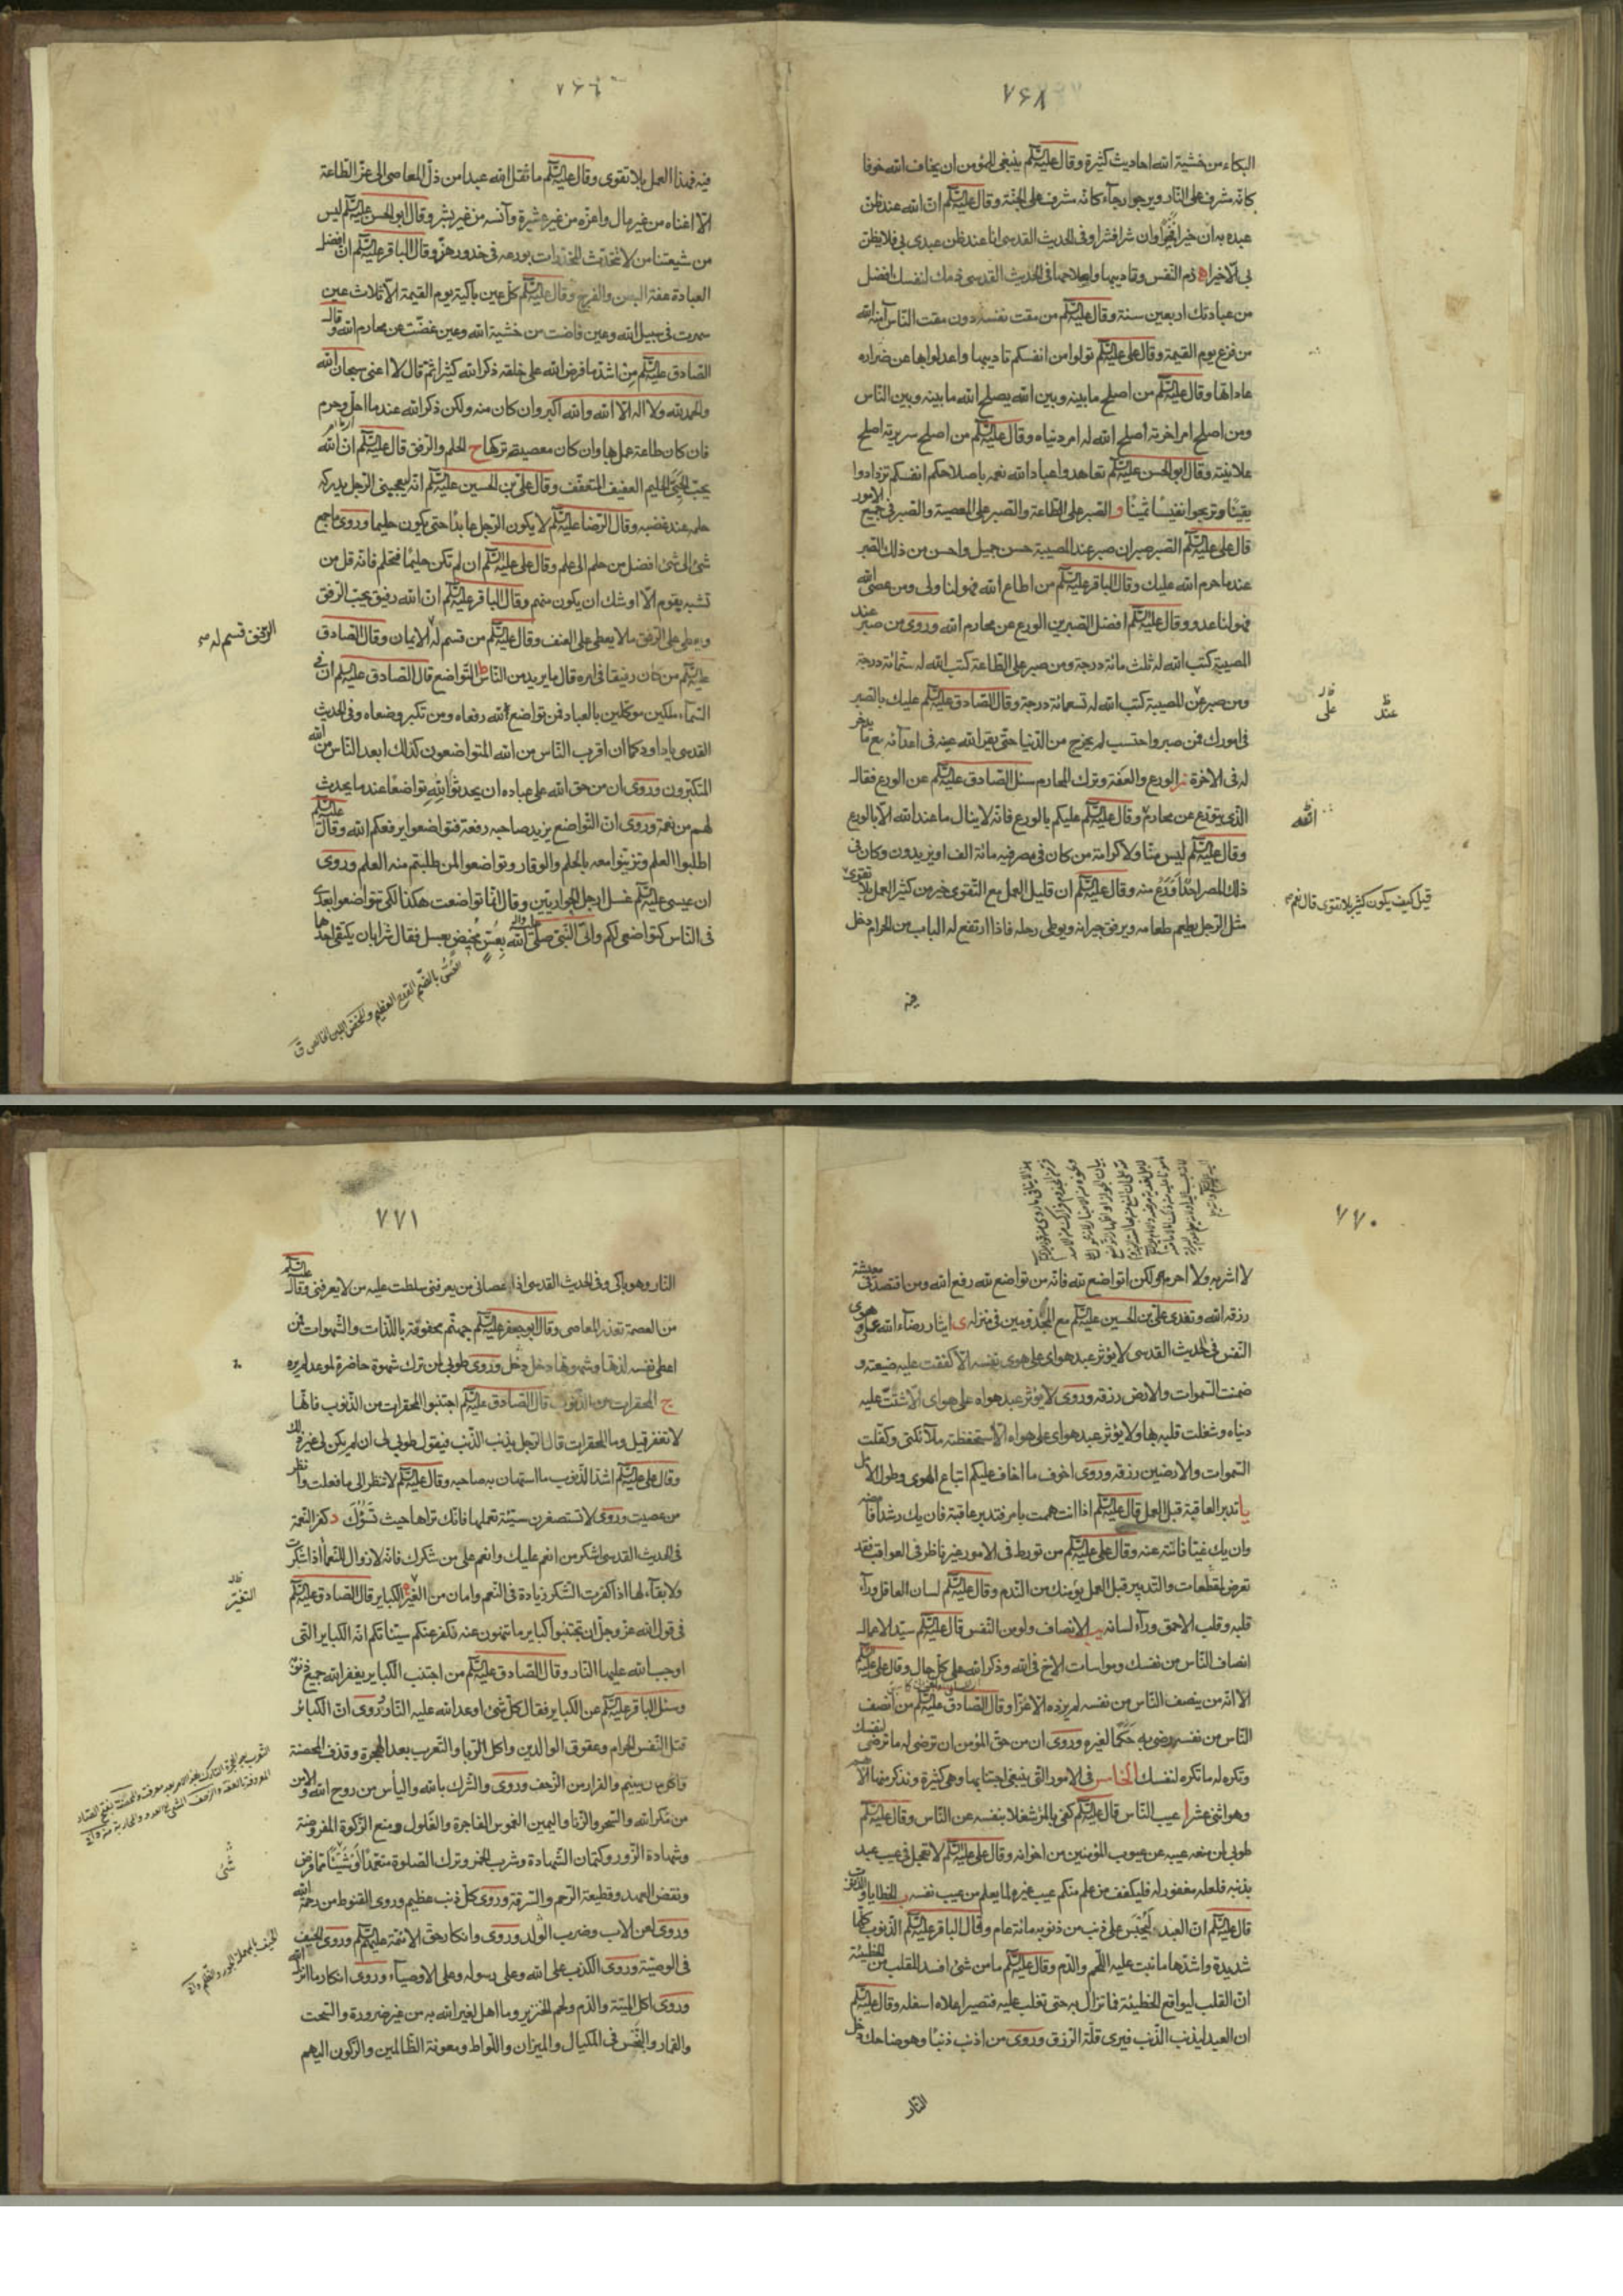 ٧۶٨
البكاء من خشية الله احاديث كثيرة وقال عليه السلم ينبغى للمؤمن ان يخاف الله خوفا
كانه مشرف على النار ويرجوا رجآء كانه مشرف على الجنة وقال عليه السلم ان الله عند ظن
عبده به ان خيرا فخيرا وان شرا فشرا وفى الحديث القدسى انا عند ظن عبدى بى فلا يظن
بى الا خيرا ه ذم النفس وتاديبها واصلاحها فى الحديث القدسى ذمك لنفسك افضل
من عبادتك اربعين سنة وقال عليه السلم من مقت نفسه دون مقت الناس آمنه الله
من فزع يوم القيمة وقال على عليه السلم تولوا من انفسكم تاديبها واعدلوا بها عن ضراوه
عاداتها وقال عليه السلم من اصلح ما بينه وبين الله يصلح الله ما بينه وبين الناس
ومن اصلح امر اخرته اصلح الله له امر دنياه وقال عليه السلم من اصلح سريرته اصلح
علانيته وقال ابو الحسن عليه السلم تعاهدوا عباد الله نعمه باصلاحكم انفسكم تزدادوا
يقينا وتربحوا نفيسا ثمينا و الصبر على الطاعة والصبر على المعصية والصبر فى جميع الامور
قال على عليه السلم الصبر صبران صبر عند المصيبة حسن جميل واحسن من ذلك الصبر
عند ما حرم الله عليك وقال الباقر عليه السلم من اطاع الله فهو لنا ولى ومن عصى الله
فهو لنا عدو وقال عليه السلم افضل الصبرين الورع عن محارم الله وروى من صبر عند
المصيبة كتب الله له ثلث مائة درجة ومن صبر على الطاعة كتب الله له ستمائة درجة
ومن صبر عن المصيبة كتب الله له تسعمائة درجة وقال الصادق عليه السلم عليك بالصبر
فى امورك فمن صبر واحتسب لم يخرج من الدنيا حتى يقر الله عينه فى اعدائه مع ما يدخر
له فى الاخرة ز الورع والعفة وترك المحارم سئل الصادق عليه السلم عن الورع فقال
الذى يتورع عن محارم وقال عليه السلم عليكم بالورع فانه لا ينال ما عند الله الا بالورع
وقال عليه السلم ليس منا ولا كرامة من كان فى مصر فيه مائة الف او يزيدون وكان فى
ذلك المصر احدا اورع منه وقال عليه السلم ان قليل العمل مع التقوى خير من كثير العمل بلا تقوى
مثل الرجل يطعم طعامه ويرفق جيرانه ويوطى رحله فاذا ارتفع له الباب من الحرام دخل
فيه
عند
على
الله
قيل كيف يكون كثير بلا تقوى قال نعم
فيه فهذا العمل بلا تقوى وقال عليه السلم ما نقل الله عبدا من ذل المعاصى الى عز الطاعة
الا اغناه من غير مال واعزه من غير عشيرة وآنسه من غير بشر وقال ابو الحسن عليه السلم ليس
من شيعتنا من لا تتحدث المخدرات بورعه فى خدورهن وقال الباقر عليه السلم ان افضل
العبادة عفة البطن والفرج وقال عليه السلم كل عين باكية يوم القيمة الا ثلاث عين
سهرت فى سبيل الله وعين فاضت من خشية الله وعين غضت عن محارم الله وقال
الصادق عليه السلم من اشد ما فرض الله على خلقه ذكر الله كثيرا ثم قال لا اعنى سبحان الله
والحمد لله ولا اله الا الله والله اكبر وان كان منه ولكن ذكر الله عند ما احل وحرم
فان كان طاعة عمل بها وان كان معصية تركها ح الحلم والرفق قال عليه السلم ان الله
يحب الحيى الحليم العفيف المتعفف وقال على بن الحسين عليه السلم انه ليعجبنى الرجل يدركه
حلمه عند غضبه وقال الرضا عليه السلم لا يكون الرجل عابدا حتى يكون حليما وروى ما جمع
شئ الى شئ افضل من حلم الى علم وقال على عليه السلم ان لم تكن حليما فتحلم فانه قل من
تشبه بقوم الا اوشك ان يكون منهم وقال الباقر عليه السلم ان الله رفيق يحب الرفق
ويعطى على الرفق ما لا يعطى على العنف وقال عليه السلم من قسم له الايمان وقال الصادق
عليه السلم من كان رفيقا فى امره قال ما يريد من الناس ط التواضع قال الصادق عليه السلم ان فى
السمآء ملكين موكلين بالعباد فمن تواضع لله رفعاه ومن تكبر وضعاه وفى الحديث
القدسى ياداود كما ان اقرب الناس من الله المتواضعون كذلك ابعد الناس من الله
المتكبرون وروى ان من حق الله على عباده ان يحدثوا لله تواضعا عند ما يحدث
لهم من نعمة وروى ان التواضع يزيد صاحبه رفعة فتواضعوا يرفعكم الله وقال عليه السلم
اطلبوا العلم وتزينوا معه بالحلم والوقار وتواضعوا لمن طلبتم منه العلم وروى
ان عيسى عليه السلم غسل ارجل الحواريين وقال انما تواضعت هكذا لكى تتواضعوا بعدى
فى الناس كتواضعى لكم واتى النبى صلى الله عليه واله بعس مخيض بعسل فقال شرابان يكتفى باحدهما
الرفق قسم له
العس بالضم القدح العظيم والمخيض اللبن الخالص ق
٧٧٠
لا اشربه ولا احرمه ولكن اتواضع لله فانه من تواضع لله رفع الله ومن اقتصد فى معيشته
رزقه الله وتغدى على بن الحسين عليه السلم مع المجذومين فى منزله ى ايثار رضاء الله على هوى
النفس فى الحديث القدسى لا يؤثر عبد هواى على هوى نفسه الا كففت عليه ضيعته و
ضمنت السموات والارض رزقه وروى لا يؤثر عبد هواه على هواى الا شتت عليه
دنياه وشغلت قلبه بها ولا يؤثر عبد هواى على هواه الا استحفظته ملآئكتى وكفلت
السموات والارضين رزقه وروى اخوف ما اخاف عليكم اتباع الهوى وطول الامل
يا تدبر العاقبة قبل العمل قال عليه السلم اذا انت هممت بامر فتدبر عاقبة فان يك رشدا فامضه
وان يك غيا فانته عنه وقال على عليه السلم من تورط فى الامور غير ناظر فى العواقب فقد
تعرض لمقطعات والتدبير قبل العمل يؤمنك من الندم وقال عليه السلم لسان العاقل ورآء
قلبه وقلب الاحمق ورآء لسانه يب الانصاف ولو من النفس قال عليه السلم سيد الاعمال
انصاف الناس من نفسك ومواسات الاخ فى الله وذكر الله على كل حال وقال على عليه السلم
الا انه من ينصف الناس من نفسه لم يزده الا عزا وقال الصادق عليه السلم من انصف
الناس من نفسه رضى به حكما لغيره وروى ان من حق المؤمن ان ترضى له ما ترضى لنفسك
وتكره له ما تكره لنفسك الخامس فى الامور التى ينبغى اجتنابها وهى كثيرة ونذكر منها الاهم
وهو اثنى عشر ا عيب الناس قال عليه السلم كفى بالمرء شغلا بنفسه عن الناس وقال عليه السلم
طوبى لمن منعه عيبه عن عيوب المؤمنين من اخوانه وقال على عليه السلم لا تعجل فى عيب عبد
بذنبه فلعله مغفور له فليكفف من علم منكم عيب غيره لما يعلم من عيب نفسه ب الخطايا والذنوب
قال عليه السلم ان العبد ليحبس على ذنب من ذنوبه مائة عام وقال الباقر عليه السلم الذنوب كلها
شديدة واشدها ما نبت عليه اللحم والدم وقال عليه السلم ما من شئ افسد للقلب من الخطيئة
ان القلب ليواقع الخطيئة فما تزال به حتى تغلب عليه فتصير اعلاه اسفله وقال عليه السلم
ان العبد ليذنب الذنب فيرى قلة الرزق وروى من اذنب ذنبا وهو ضاحك دخل
النار
٧٧١
النار وهو باكى وفى الحديث القدسى اذا عصانى من يعرفنى سلطت عليه من لا يعرفنى وقال عليه السلم
من العصمة تعذر المعاصى وقال ابو جعفر عليه السلم جهنم محفوفة باللذات والشهوات فمن
اعطى نفسه لذتها وشهوتها دخل وروى طوبى لمن ترك شهوة حاضرة لموعد لم يره
ج المحقرات من الذنوب قال الصادق عليه السلم اجتنبوا المحقرات من الذنوب فانها
لا تغفر قيل وما المحقرات قال الرجل يذنب الذنب فيقول طوبى لى ان لم يكن لى غير ذلك
وقال على عليه السلم اشد الذنوب ما استهان به صاحبه وقال عليه السلم لا تنظر الى ما فعلت وانظر
من عصيت وروى لا تستصغرن سيئة تعملها فانك تراها حيث تسؤك د كفر النعمة
فى الحديث القدسى اشكر من انعم عليك وانعم على من شكرك فانه لا زوال للنعمآ اذا شكرت
ولا بقآء لها اذا كفرت الشكر زيادة فى النعم وامان من الغير ه الكباير قال الصادق عليه السلم
فى قول الله عز وجل ان تجتنبوا كباير ما تنهون عنه نكفر عنكم سيئاتكم انه الكباير التى
اوجب الله عليها النار وقال الصادق عليه السلم من اجتنب الكباير يغفر الله جميع ذنوبه
وسئل الباقر عليه السلم عن الكباير فقال كل شئ اوعد الله عليه النار وروى ان الكبائر
قتل النفس الحرام وعقوق الوالدين واكل الربا والتعرب بعد الهجرة وقذف المحصنة
واكل مال اليتيم والفرار من الزحف وروى والشرك بالله واليأس من روح الله والامن
من مكر الله والسحر والزنا واليمين الغموس الفاجرة والغلول ومنع الزكوة المفروضة
وشهادة الزور وكتمان الشهادة وشرب الخمر وترك الصلوة متعمدا او شيئا مما فرض
ونقض العهد وقطيعة الرحم والسرقة وروى كل ذنب عظيم وروى القنوط من رحمة الله
وروى لعن الاب وضرب الولد وروى وانكار حق الائمة عليهم السلم وروى الحيف
فى الوصية وروى الكذب على الله وعلى رسوله وعلى الاوصيآء وروى انكار ما انزل الله
وروى اكل الميتة والدم ولحم الخنزير وما اهل لغير الله به من غير ضرورة والسحت
والقمار والبخس فى المكيال والميزان واللواط ومعونة الظالمين والركون اليهم
التغير
شئ